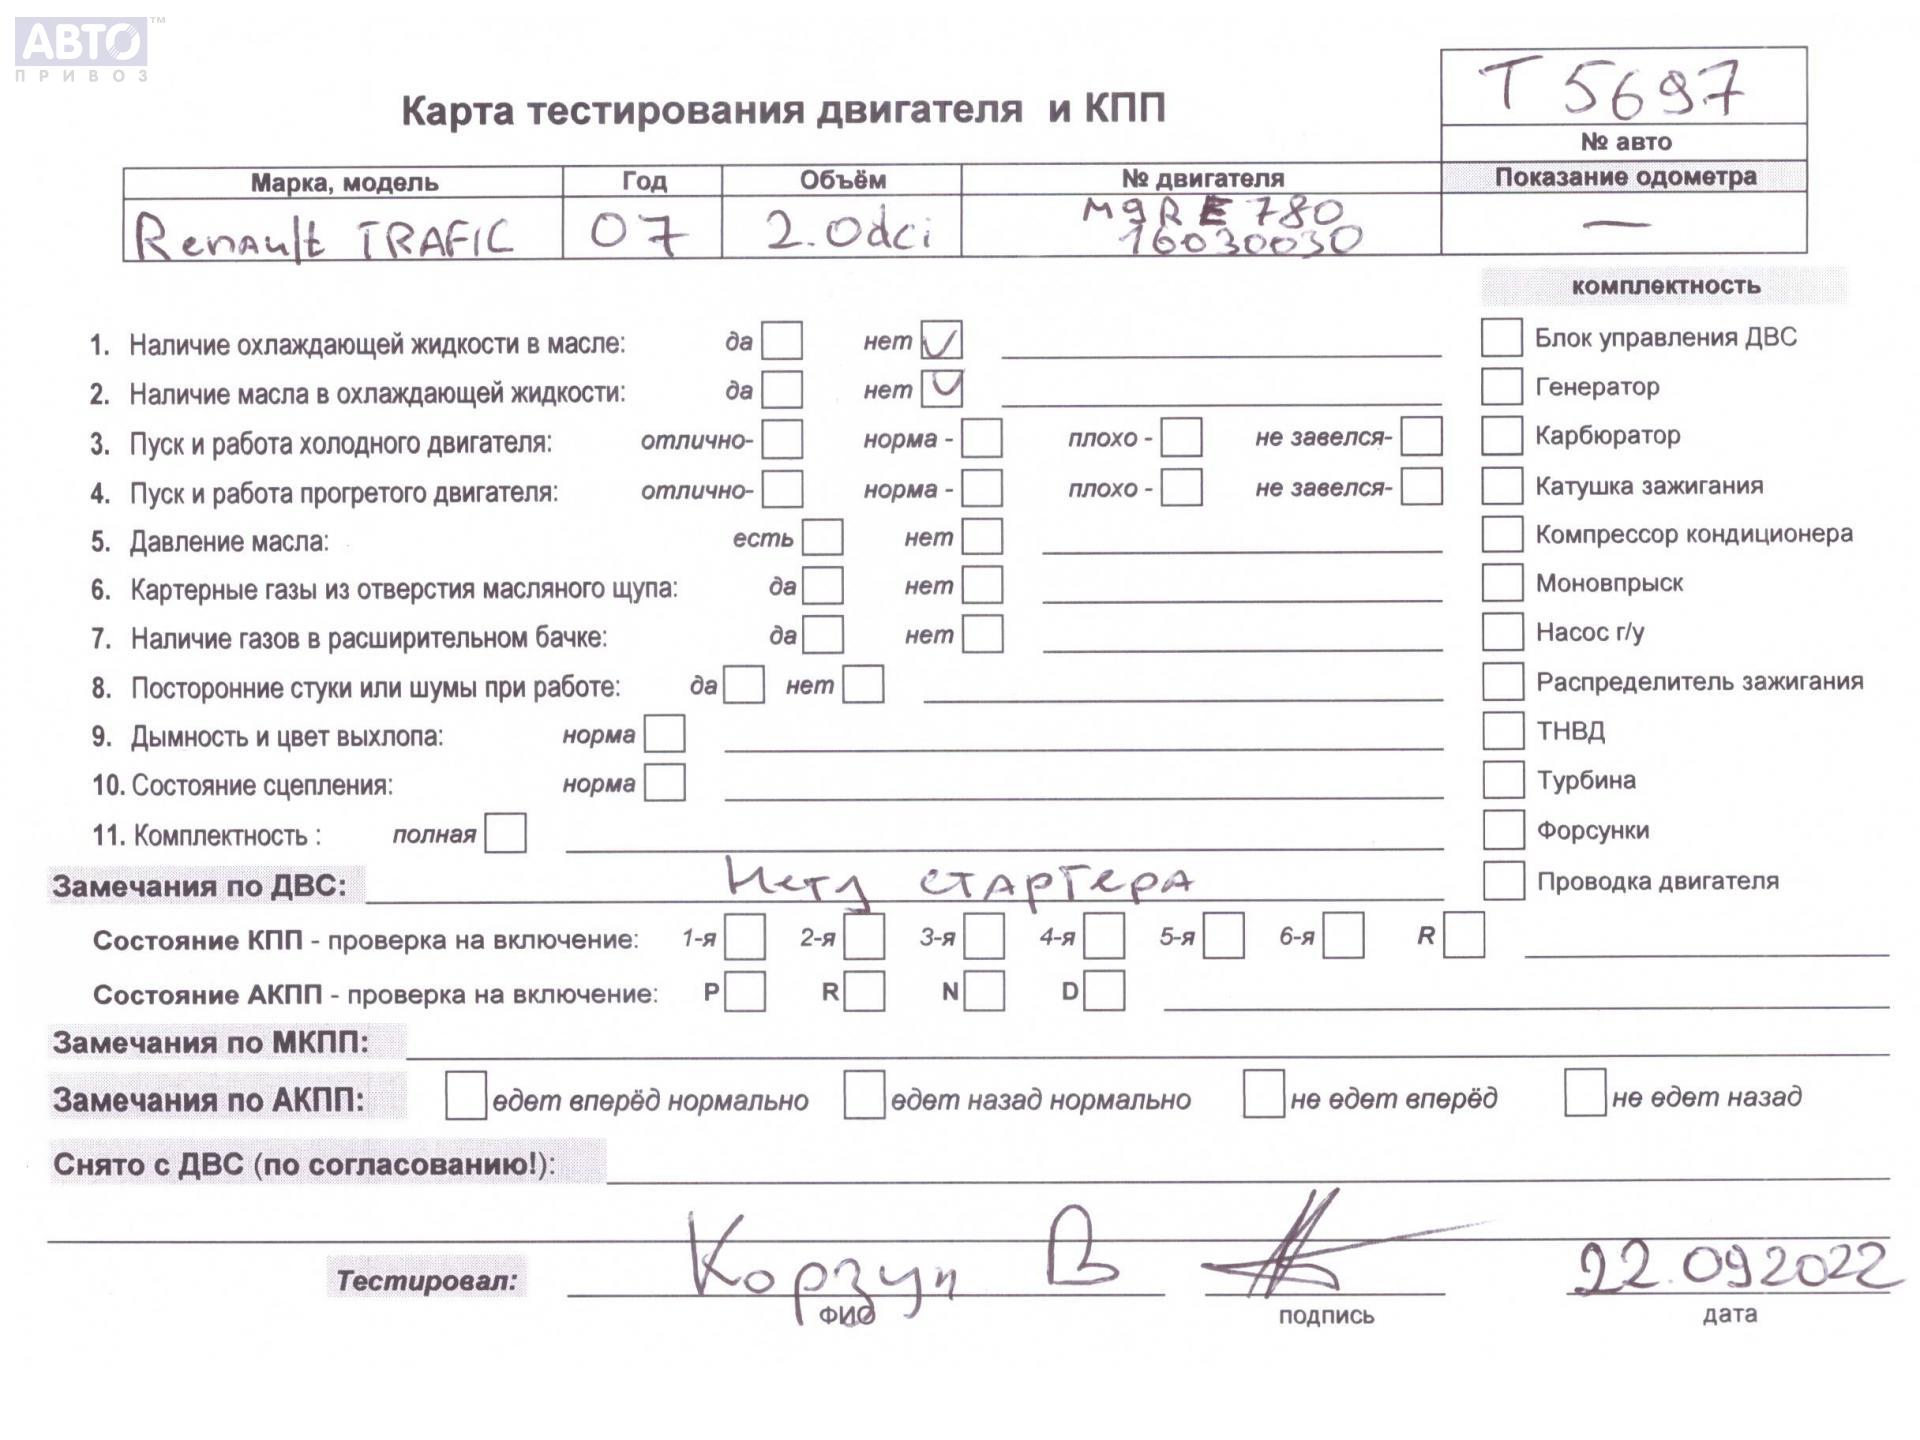 АВТО™
ПРИВОЗ
Т 5697
Карта тестирования двигателя и КПП
№ авто
Марка, модель Год Объём № двигателя Показание одометра
Renault TRAFIC 07 2.0dci M9R E 780 —
16030030
комплектность
1. Наличие охлаждающей жидкости в масле: да нет Блок управления ДВС
2. Наличие масла в охлаждающей жидкости: да нет Генератор
3. Пуск и работа холодного двигателя: отлично- норма - плохо - не завелся- Карбюратор
4. Пуск и работа прогретого двигателя: отлично- норма - плохо - не завелся- Катушка зажигания
5. Давление масла: есть нет Компрессор кондиционера
6. Картерные газы из отверстия масляного щупа: да нет Моновпрыск
7. Наличие газов в расширительном бачке: да нет Насос г/у
8. Посторонние стуки или шумы при работе: да нет Распределитель зажигания
9. Дымность и цвет выхлопа: норма ТНВД
10. Состояние сцепления: норма Турбина
11. Комплектность : полная Форсунки
Замечания по ДВС: стартера Проводка двигателя
Состояние КПП - проверка на включение: 1-я 2-я 3-я 4-я 5-я 6-я R
Состояние АКПП - проверка на включение: P R N D
Замечания по МКПП:
Замечания по АКПП: едет вперёд нормально едет назад нормально не едет вперёд не едет назад
Снято с ДВС (по согласованию!):
Тестировал: Корзун В 22.092022
ФИО подпись дата